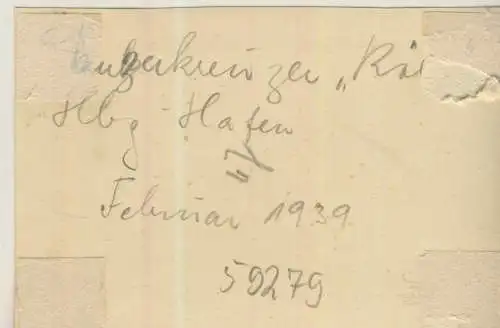 Panzerkreuzer „Kö
Hbg Hafen
Februar 1939
59279